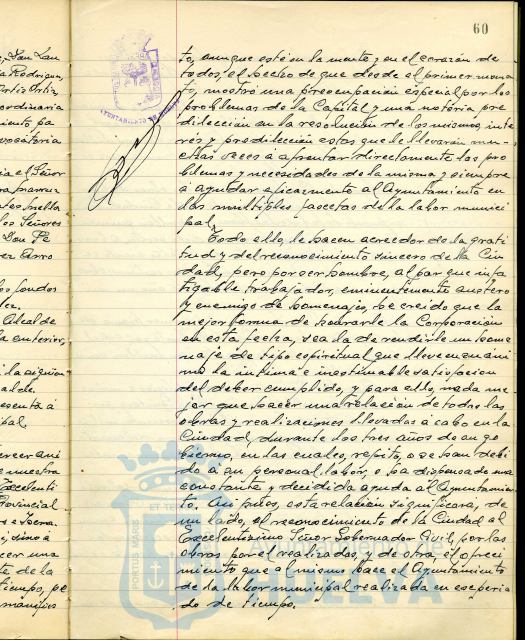 60
to, aunque esté en la mente y en el corazón de
todos, el hecho de que desde el primer momen
to, mostró una preocupación especial por los
problemas de la Capital y una notoria pre
dilección en la resolución de los mismos, inte
rés y predilección estos que le llevarán mu-
chas veces a afrontar directamente los pro
blemas y necesidades de la misma y siempre
á ayudar eficazmente al Ayuntamiento en
las múltiples facetas de la labor munici
pal.
Todo ello, le hacen acreedor de la grati
tud y del reconocimiento sincero de la Ciu
dad, pero por ser hombre, al par que infa
tigable trabajador, eminentemente austero
y enemigo de homenajes, he creido que la
mejor forma de honrarle la Corporación
en esta fecha, sea la de rendirle un home
naje de tipo espiritual que lleve en su áni
mo la intima é inestimable satisfacion
del deber cumplido, y para ello, nada me
jor que hacer una relación de todas las
obras y realizaciones llevadas á cabo en la
Ciudad, durante los tres años de su go
bierno, en las cuales, repito, o se han debi
do á su personal labor, o ha dispensado una
constante y decidida ayuda al Ayuntamien
to. Así pues, esta relación significará, de
un lado, el reconocimiento de la Ciudad al
Excelentísimo Señor Gobernador Civil, por las
obras por el realizadas, y de otra, el ofreci
miento que al mismo hace el Ayuntamiento
de la labor municipal realizada en ese perio
do de tiempo.
Rodriguez,
Ortiz Ortiz,
ordinaria
miento pa
vocatoria
ia el Señor
los Señores
Don Pe
los fondos
Alcalde
la anterior,
la siguien
al de
esenta á
pal,
Excelenti
Provincial
cer una
te de la
tiempo, pe
manifies
AYUNTAMIENTO DE HUELVA
PORTUS MARIS
ET TE
HUELVA